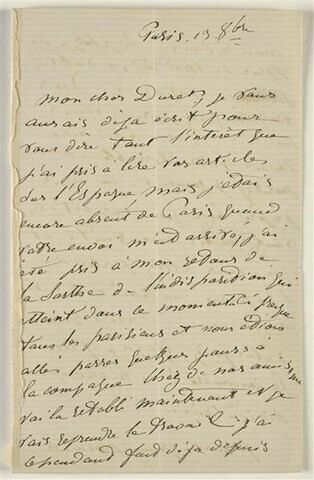 Paris. 13 8bre
mon cher Duret, je vous
aurais deja écrit pour
vous dire tout l'interêt que
j'ai pris à lire vos articles
sur l'Espagne mais j'etais
encore absent de Paris quand
votre envoi m'est arrivé, j'ai
été pris à mon retour de
la Sarthe de l'indisposition qui
atteint dans le moment-ci presque
tous les parisiens et nous etions
allés passer quelques jours à
la campagne chez de nos amis,
vai la retabli maintenant et je
vais reprendre le travail j'ai
cependant fait deja depuis